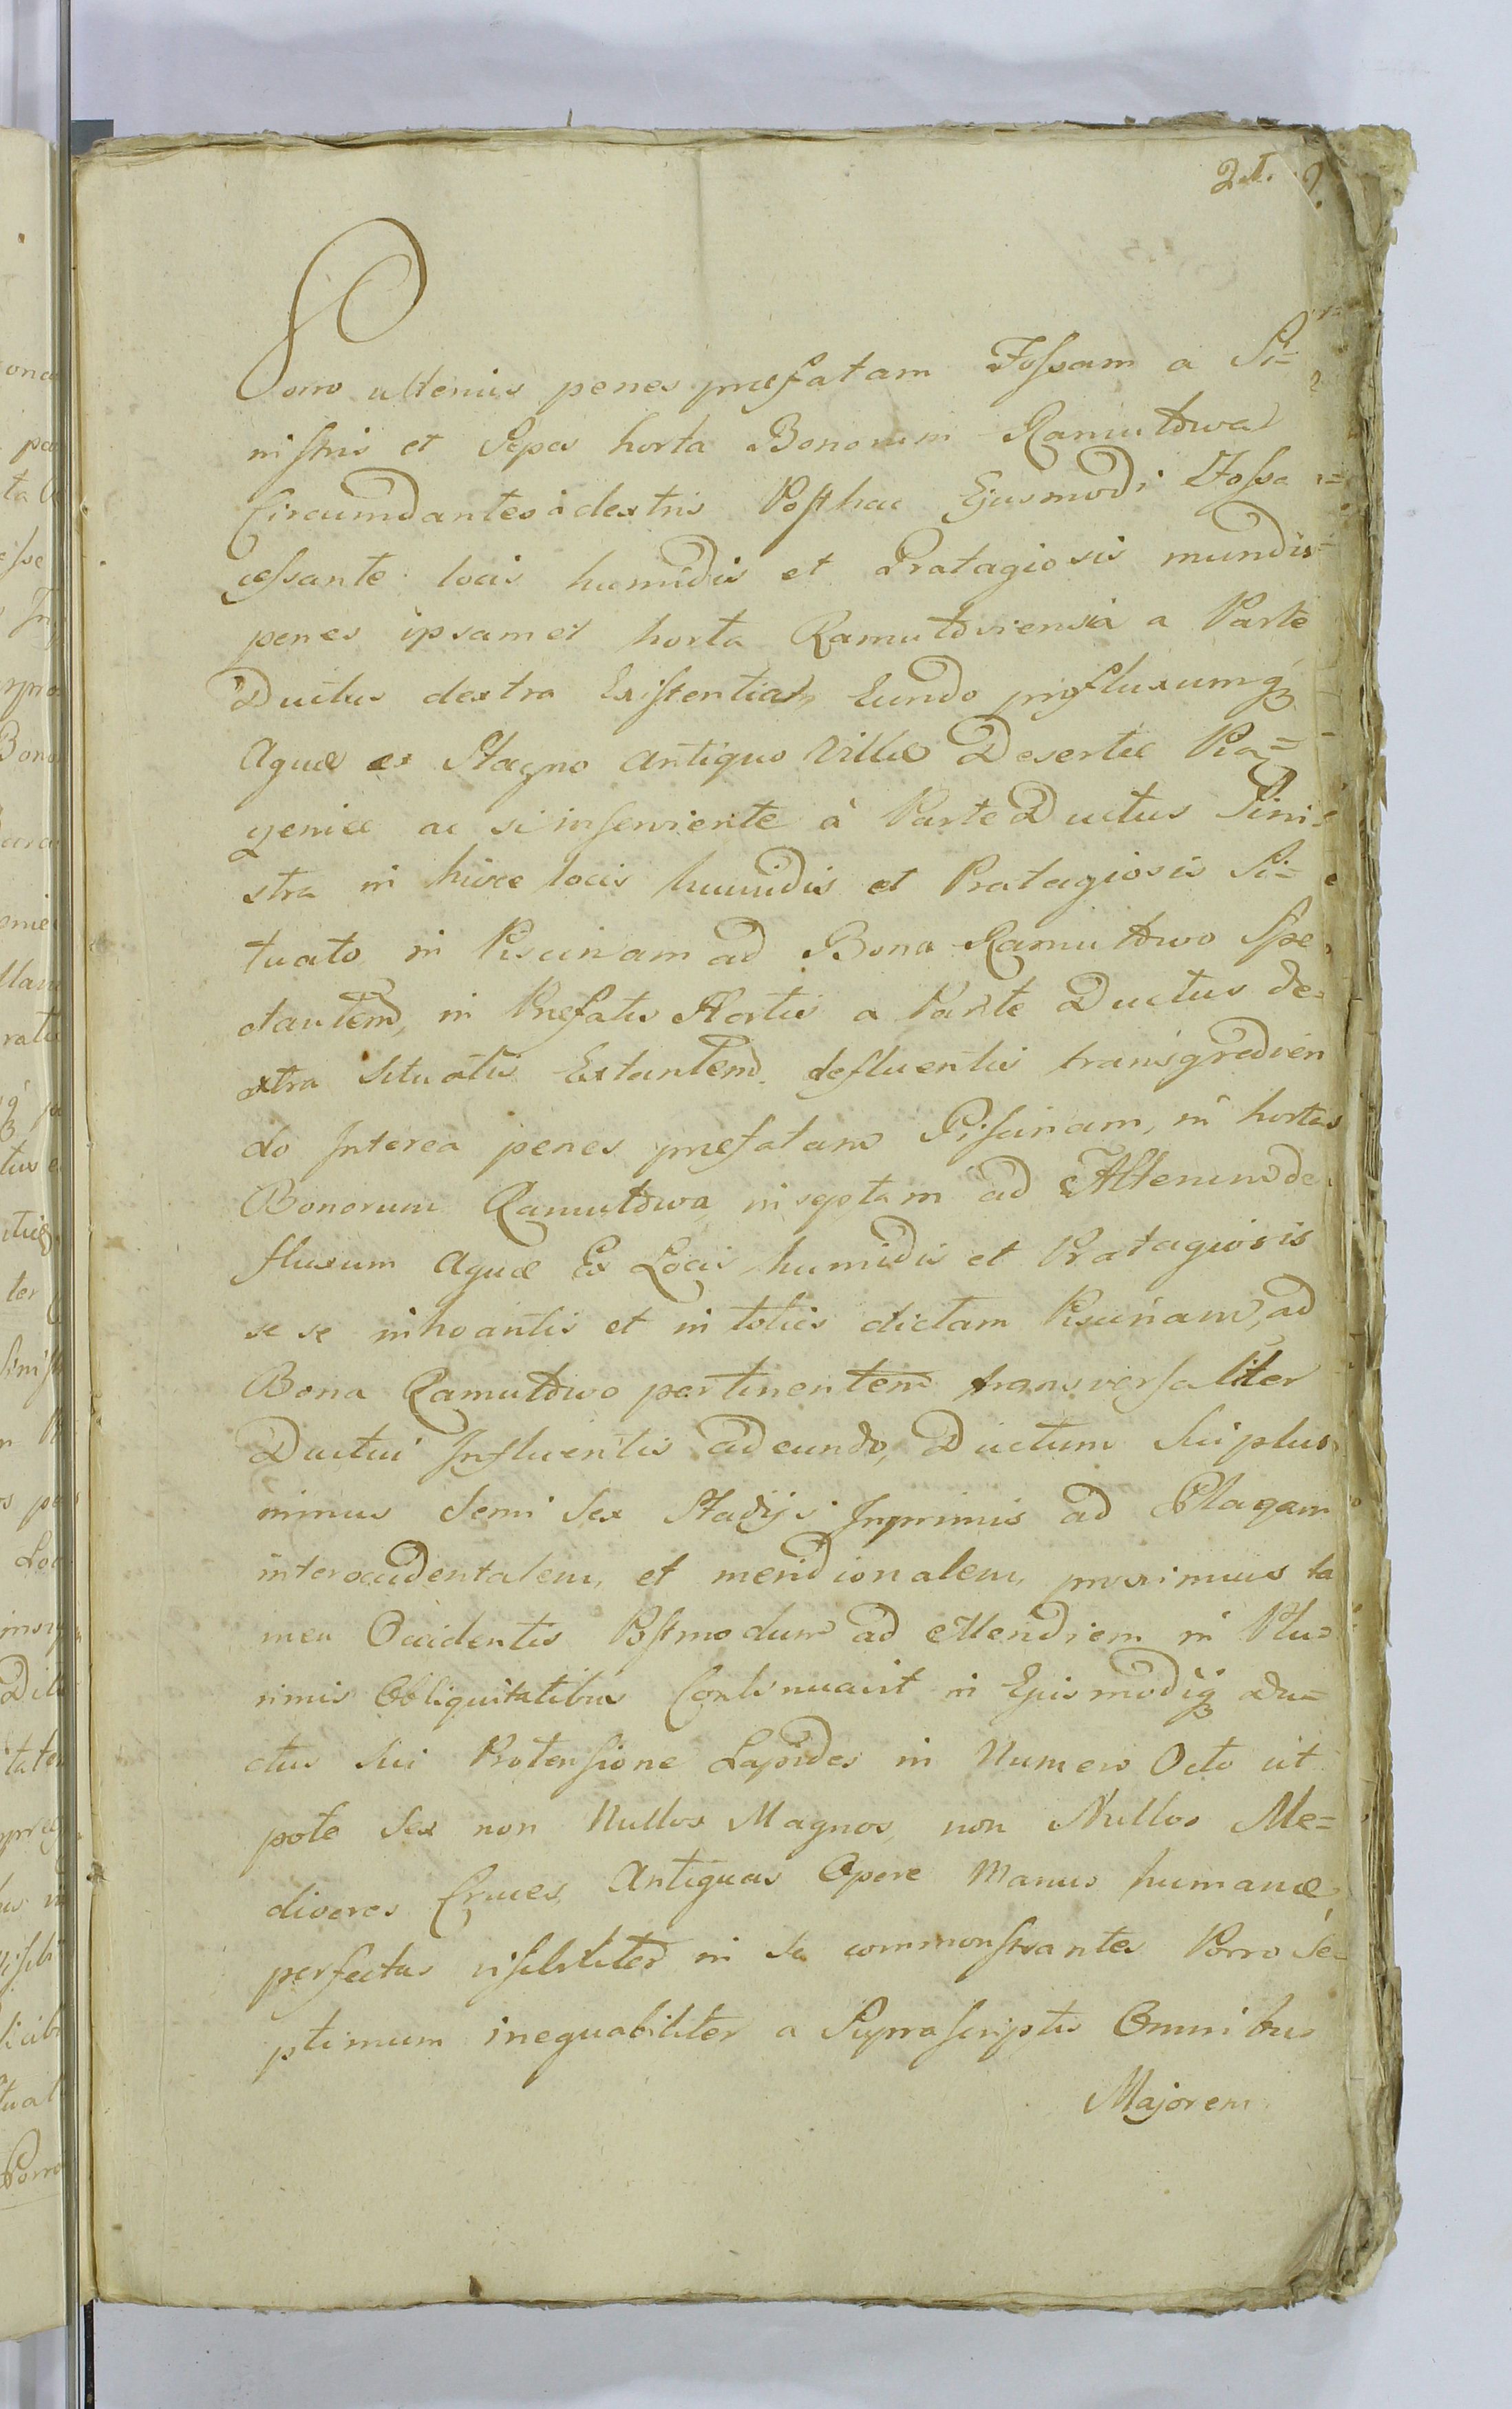 21.
Porro ulterius penes præfatam Fossam a Si=
nistris et Sepes horta Bonorum Ramutowa
Circumdantes à dextris Posthac Ejusmodi Fossa
cessante locis humidis et Pratagiosis mundis
penes ipsamet horta Ramutoviensia a Parte
Ductus dextra Existentia, Eundo profluxumq3
Aquæ ex Stagno antiquo Villæ Desertæ Pia=
geniæ ac si inserviente à Parte Ductus Sini
stra in hisce locis humidis et Pratagiosis Si=
tuato in Piscinam ad Bona Ramutowo Spe
ctantem, in Præfatis Hortis a Parte Ductus de=
xtra Situatis Extantem defluentis transgredien
do Interea penes præfatam Piscinam, in hortas
Bonorum Ramutowa inseptam ad Alterum de
fluxum Aquæ Ex Locis humidis et Pratagiosis
se se inhoantis et in toties dictam Piscinam, ad
Bona Ramutowo pertinentem transversaliter
Ductui Influentis adeundo, Ductum Sui plus
minus Semi Sex Stadijs Inprimis ad Plagam
interoccidentalem, et meridionalem, proximius ta
men Occidentis Postmodum ad Meridiem in Plu=
rimis Obliquitatibus Continuavit in Ejusmodiq3 Du=
ctus Sui Protensione Lapides in Numero Octo ut
pote Sex non Nullos Magnos, non Nullos Me=
diocres Cruces Antiquas Opere Manus humanæ
perfectas visibiliter in Se commonstrantes Porro Se=
ptimum inequabiliter a Suprascriptis Omnibus
Majorem